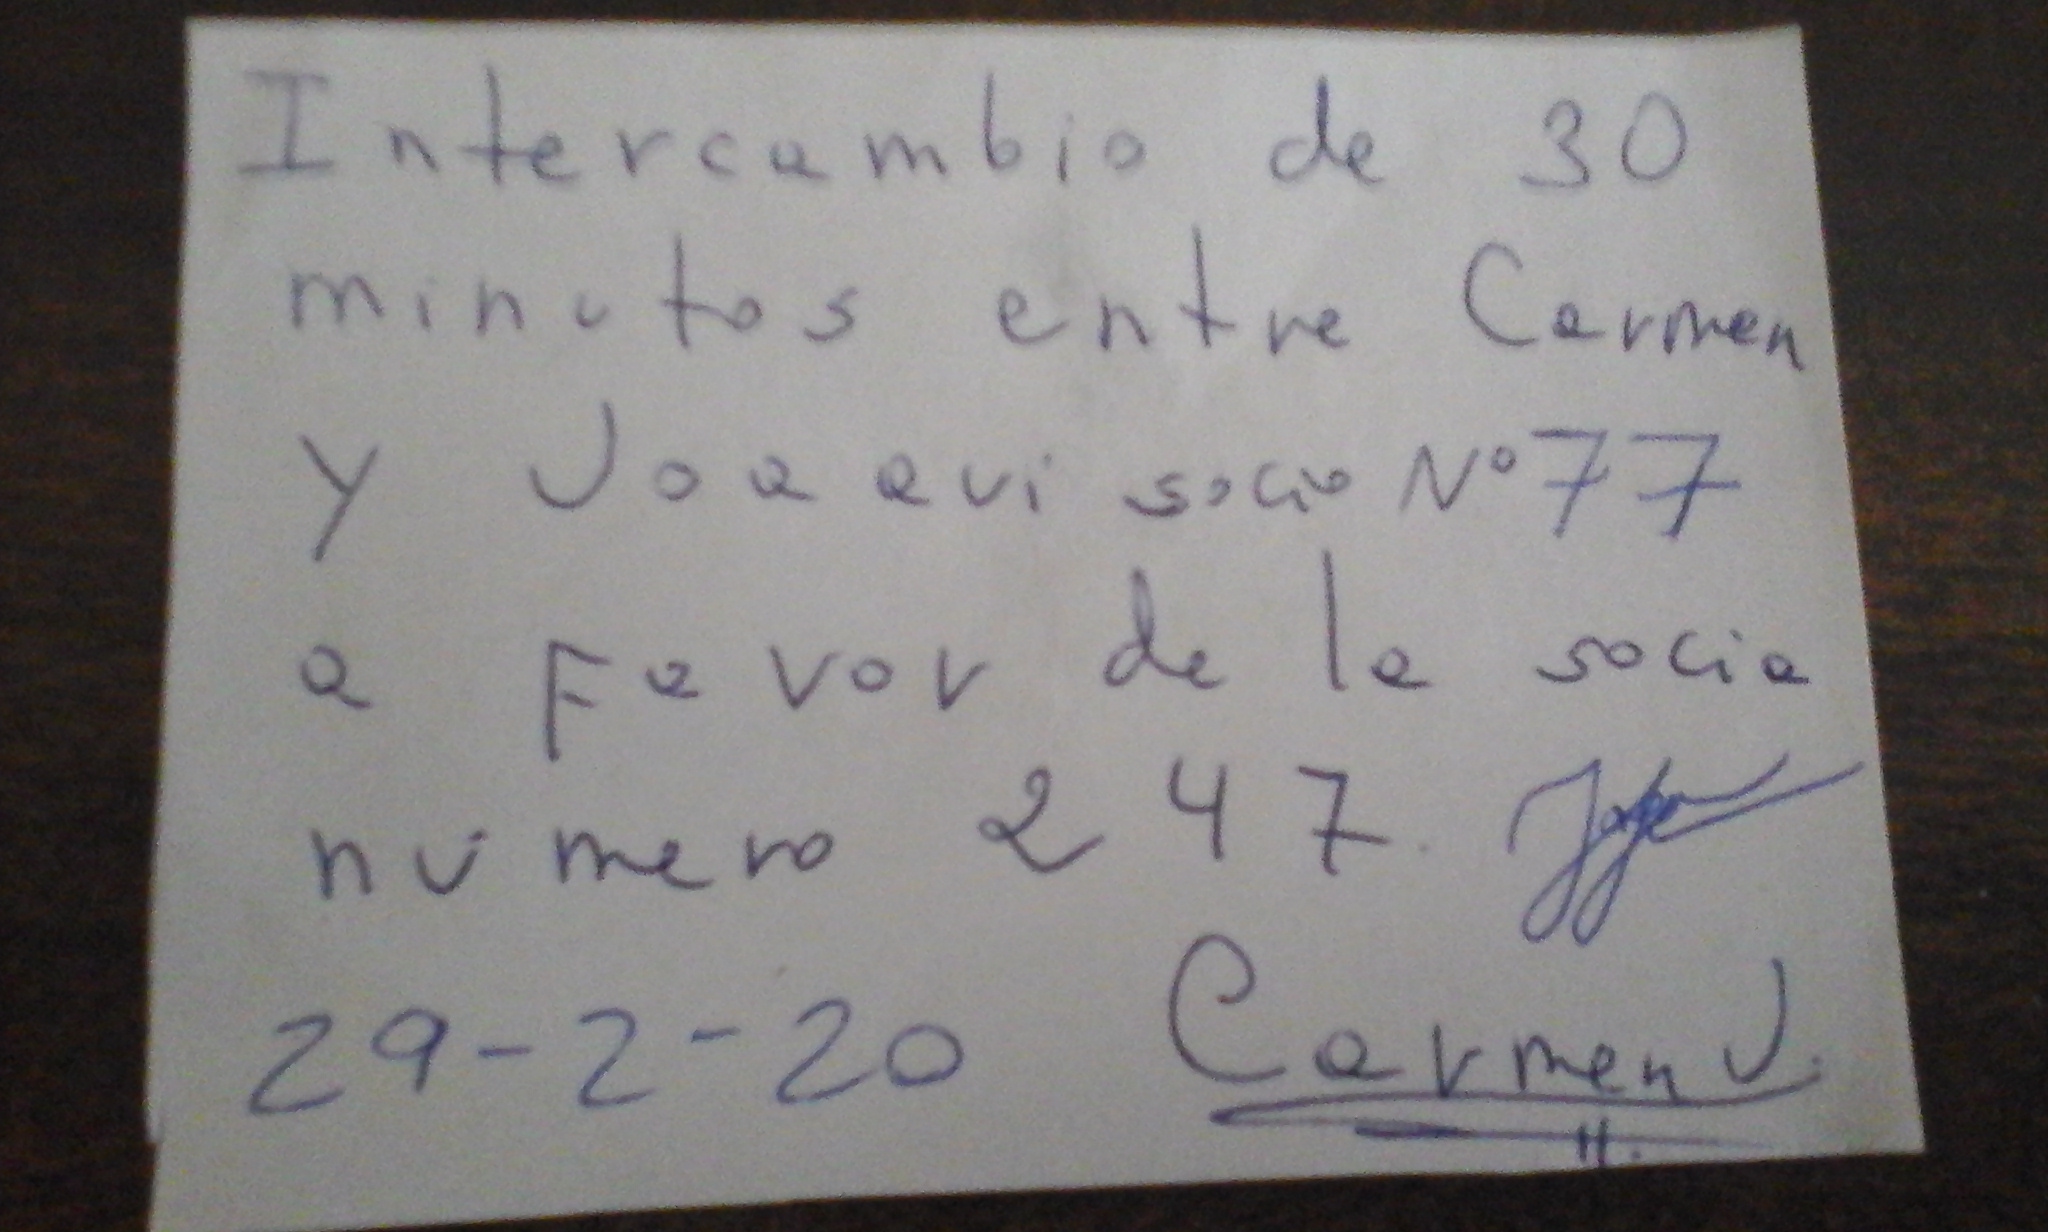 Intercambio de 30
minutos entre Carmen
y Joaavi socio Nº 77
a Favor de la socia
número 247.
29-2-20 Carmen J.